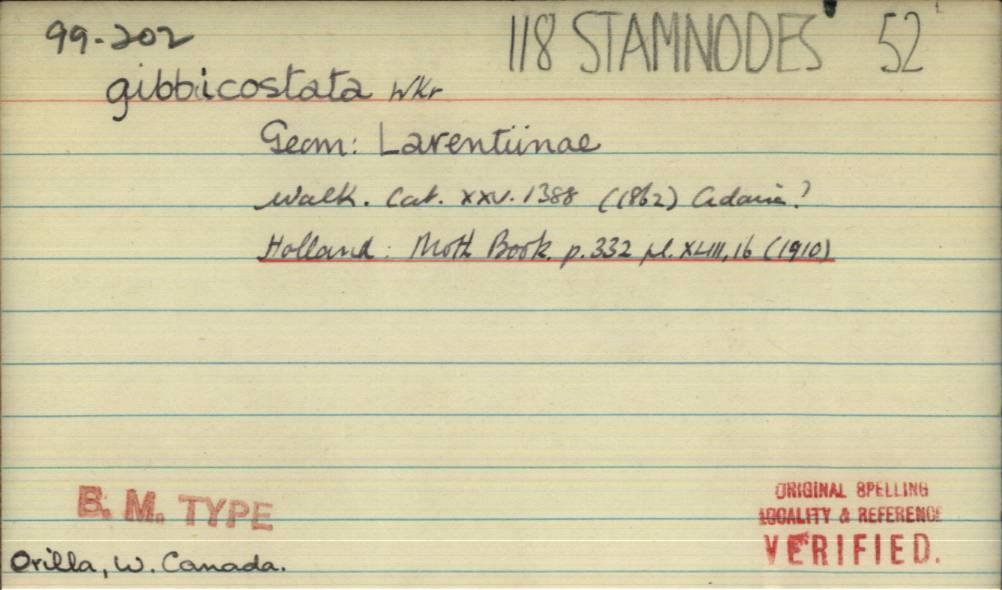 99-202 118 STAMNODES 52
gibbicostata Wkr.
Geom: Larentiinae
Walk. Cat. XXV. 1388 (1862) Cidaria?
Holland: Moth Book. p.332 pl. XLIII,16 (1910)
B. M. TYPE
ORIGINAL SPELLING
LOCALITY & REFERENCE
VERIFIED.
Orilla, W. Canada.